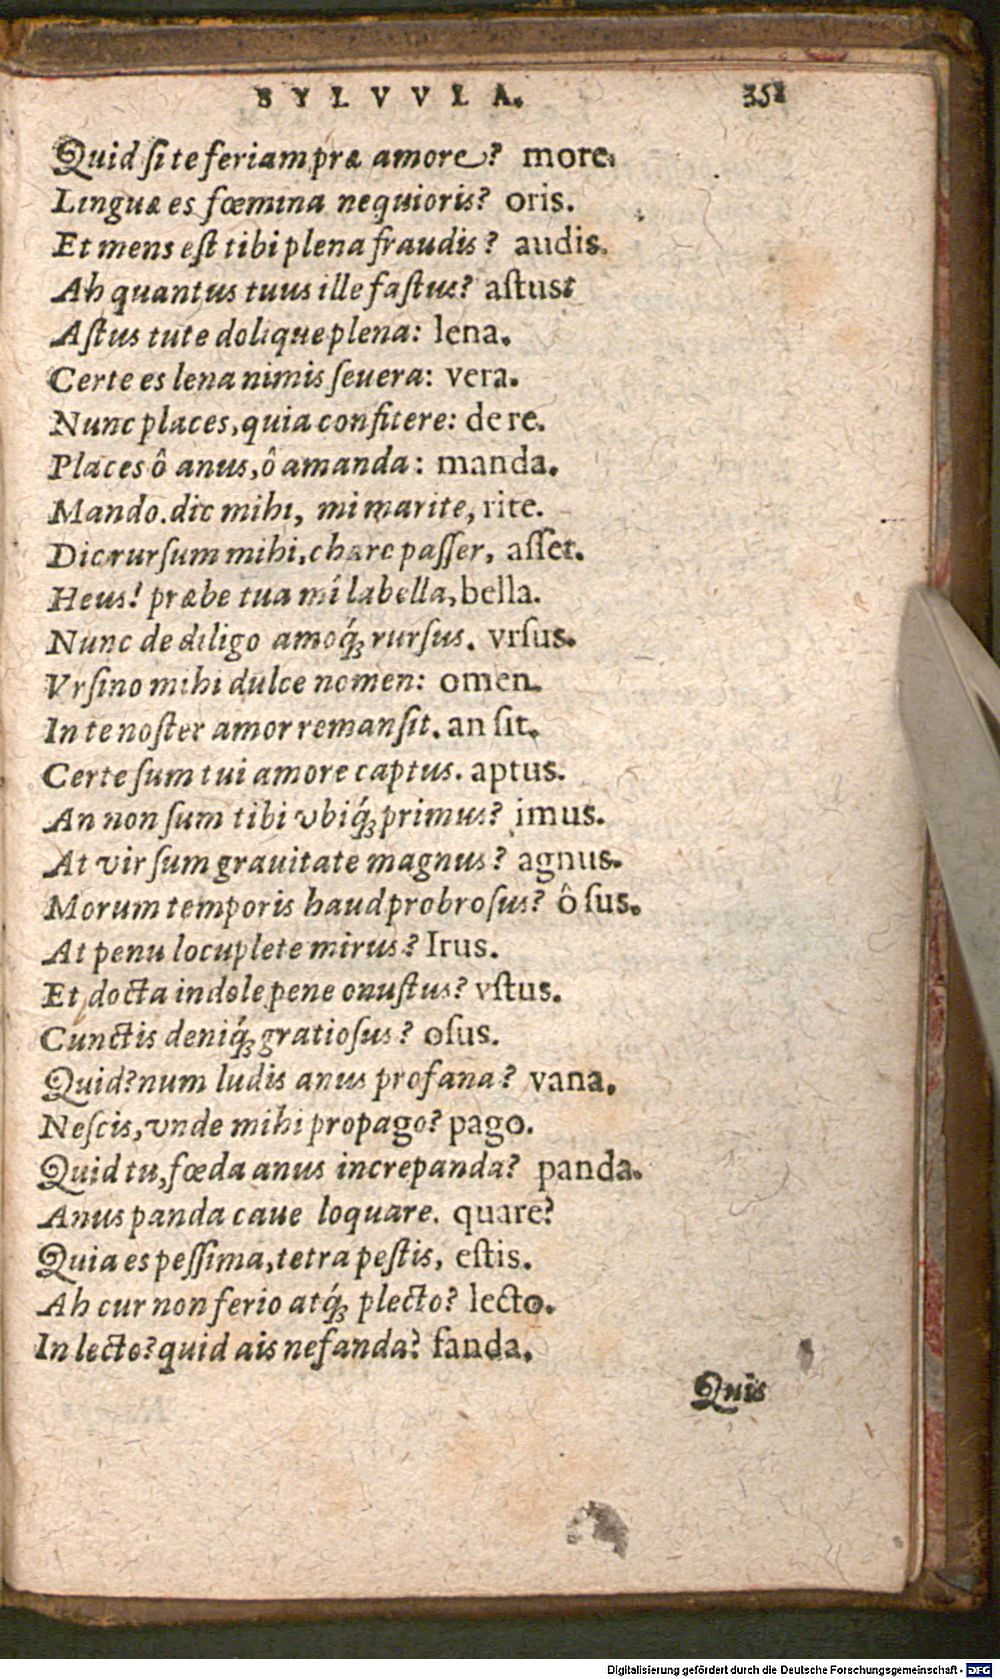 SYLVVLA. 351
Quid ſi te feriam præ amore? more.
Linguæ es fœmina nequioris? oris.
Et mens eſt tibi plena fraudis? audis.
Ah quantus tuus ille faſtus? aſtus:
Aſtus tute dolique plena: lena.
Certe es lena nimis ſeuera: vera.
Nunc places, quia confitere: de re.
Places ô anus, ô amanda: manda.
Mando. dic mihi, mi marite, rite.
Dic rurſum mihi, chare paſſer, aſſer.
Heus! præbe tua mî labella, bella.
Nunc de diligo amoq́; rurſus. vrſus.
Vrſino mihi dulce nomen: omen.
In te noſter amor remanſit. an ſit.
Certe ſum tui amore captus. aptus.
An non ſum tibi vbiq́; primus? imus.
At vir ſum grauitate magnus? agnus.
Morum temporis haud probroſus? ô ſus.
At penu locuplete mirus? Irus.
Et docta indole pene onuſtus? vſtus.
Cunctis deniq́; gratioſus? oſus.
Quid? num ludis anus profana? vana.
Neſcis, vnde mihi propago? pago.
Quid tu, fœda anus increpanda? panda.
Anus panda caue loquare. quare?
Quia es peſſima, tetra peſtis, eſtis.
Ah cur non ferio atq́; plecto? lecto.
In lecto? quid ais nefanda? fanda.
Quis
Digitalisierung gefördert durch die Deutsche Forschungsgemeinschaft - DFG